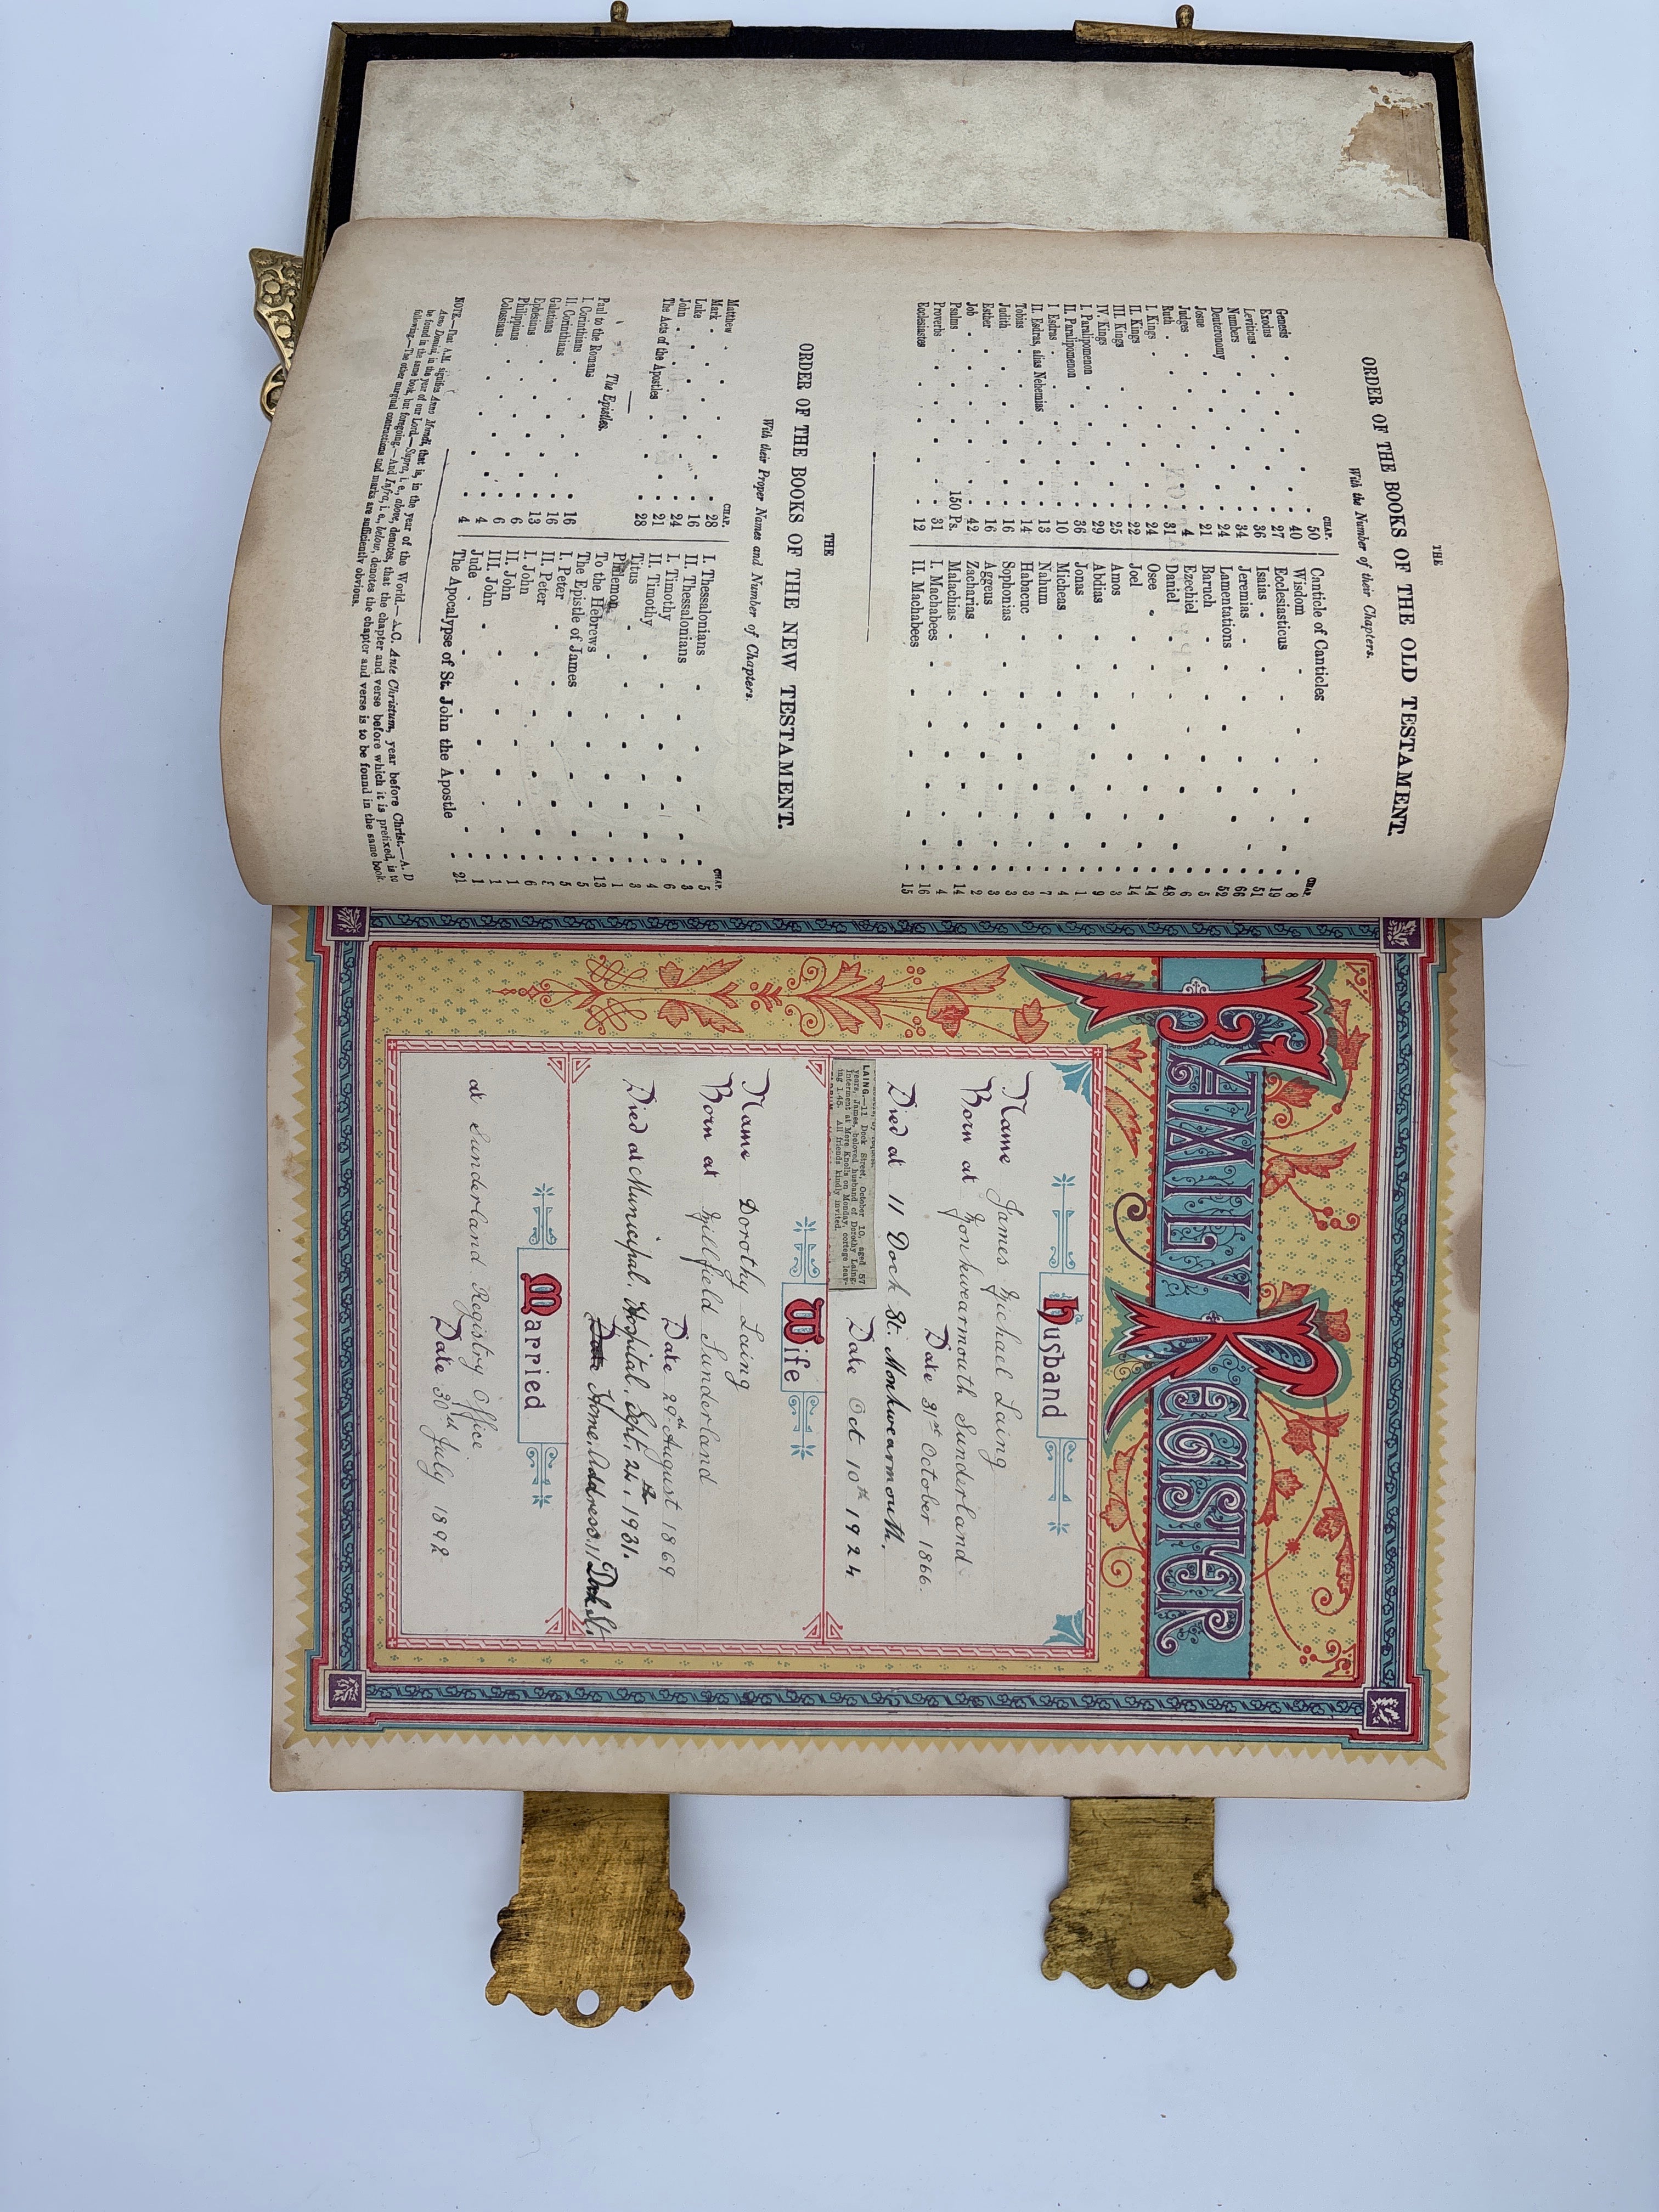 THE
ORDER OF THE BOOKS OF THE OLD TESTAMENT.
With the Number of their Chapters.
CHAP.
Genesis 50
Exodus 40
Leviticus 27
Numbers 36
Deuteronomy 34
Josue 24
Judges 21
Ruth 4
I. Kings 31
II. Kings 24
III. Kings 22
IV. Kings 25
I. Paralipomenon 29
II. Paralipomenon 36
I Esdras 10
II. Esdras, alias Nehemias 13
Tobias 14
Judith 16
Esther 16
Job 42
Psalms 150 Ps.
Proverbs 31
Ecclesiastes 12
CHAP.
Canticle of Canticles 8
Wisdom 19
Ecclesiasticus 51
Isaias 66
Jeremias 52
Lamentations 5
Baruch 6
Ezechiel 48
Daniel 14
Osee 14
Joel 3
Amos 9
Abdias 1
Jonas 4
Micheas 7
Nahum 3
Habacuc 3
Sophonias 3
Aggeus 2
Zacharias 14
Malachias 4
I. Machabees 16
II. Machabees 15
THE
ORDER OF THE BOOKS OF THE NEW TESTAMENT.
With their Proper Names and Number of Chapters.
CHAP.
Matthew 28
Mark 16
Luke 24
John 21
The Acts of the Apostles 28
The Epistles.
Paul to the Romans 16
I. Corinthians 16
II. Corinthians 13
Galatians 6
Ephesians 6
Philippians 4
Colossians 4
CHAP.
I. Thessalonians 5
II. Thessalonians 3
I. Timothy 6
II. Timothy 4
Titus 3
Philemon 1
To the Hebrews 13
The Epistle of James 5
I. Peter 5
II. Peter
I. John
II. John 1
III. John 1
Jude 1
The Apocalypse of St. John the Apostle 21
NOTE.—That A.M. signifies Anno Mundi, that is, in the year of the World.—A.C. Ante Christum, year before Christ.—A. D
Anno Domini, in the year of our Lord.—Supra, i. e., above, denotes, that the chapter and verse before which it is prefixed, is to
be found in the same book, but foregoing.—And Infra, i. e., below, denotes the chapter and verse is to be found in the same book,
following.—The other marginal contractions and marks are sufficiently obvious.
FAMILY REGISTER
Husband
Name James Michael Laing
Born at Monkwearmouth Sunderland
Date 31st October 1866.
Died at 11 Dock St. Monkwearmouth.
Date Oct 10th 1924
LAING.—11 Dock Street, October 10, aged 57
years, James, beloved husband of Dorothy Laing.
Interment at Mere Knolls on Monday, cortege leav-
ing 1.45. All friends kindly invited.
Wife
Name Dorothy Laing
Born at Millfield Sunderland
Date 29th August 1869
Died at Municipal Hospital, Sept. 24th 1931.
Date Home Address, 11 Dock St.
Married
at Sunderland Registry Office.
Date 30th July 1892